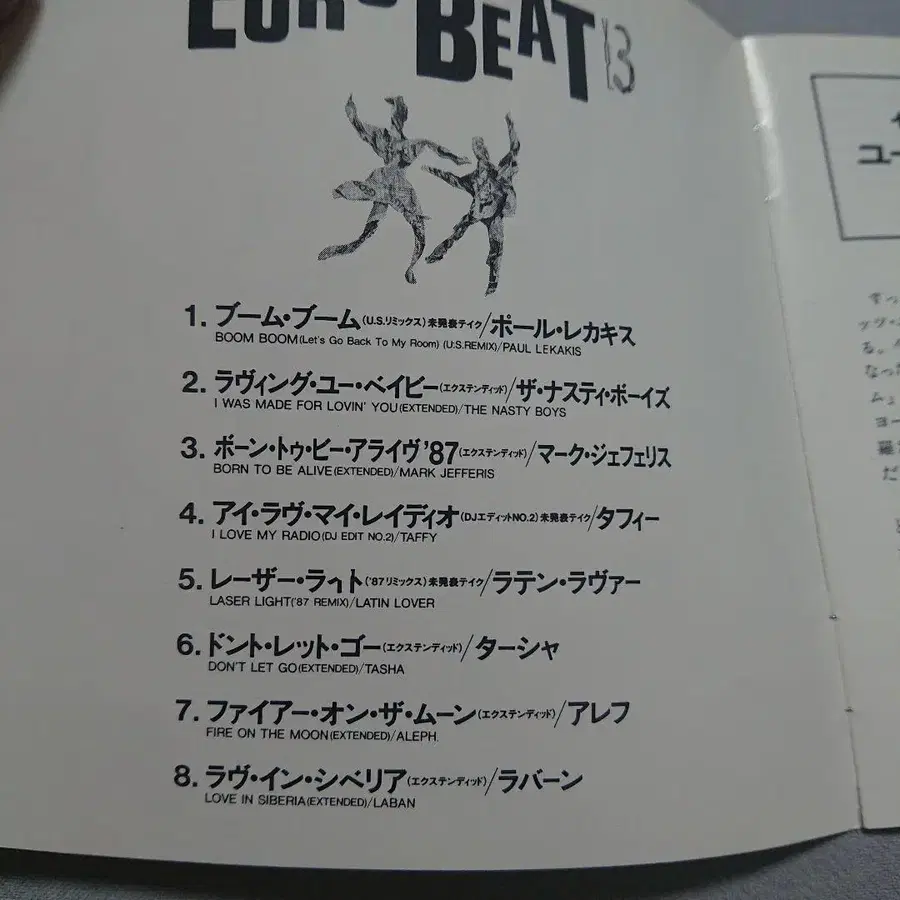 EURO BEAT 13
1. ブーム・ブーム(U.S.リミックス)未発表テイク/ポール・レカキス
BOOM BOOM(Let's Go Back To My Room) (U.S.REMIX)/PAUL LEKAKIS
2. ラヴィング・ユー・ベイビー(エクステンディッド)/ザ・ナスティ・ボーイズ
I WAS MADE FOR LOVIN' YOU(EXTENDED)/THE NASTY BOYS
3. ボーン・トゥ・ビー・アライヴ'87(エクステンディッド)/マーク・ジェフェリス
BORN TO BE ALIVE(EXTENDED)/MARK JEFFERIS
4. アイ・ラヴ・マイ・レイディオ(DJエディットNO.2)未発表テイク/タフィー
I LOVE MY RADIO(DJ EDIT NO.2)/TAFFY
5. レーザー・ライト('87リミックス)未発表テイク/ラテン・ラヴァー
LASER LIGHT('87 REMIX)/LATIN LOVER
6. ドント・レット・ゴー(エクステンディッド)/ターシャ
DON'T LET GO(EXTENDED)/TASHA
7. ファイアー・オン・ザ・ムーン(エクステンディッド)/アレフ
FIRE ON THE MOON(EXTENDED)/ALEPH.
8. ラヴ・イン・シベリア(エクステンディッド)/ラバーン
LOVE IN SIBERIA(EXTENDED)/LABAN
ユー
る。
なった
ム」
ヨー
羅
だ